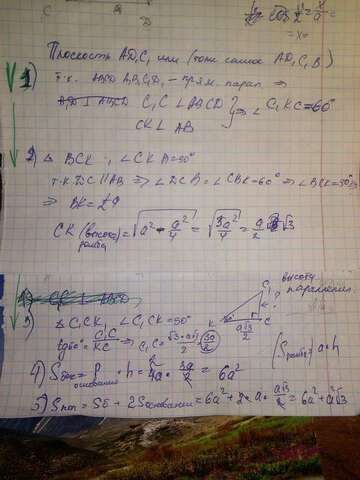 C
B
D
Плоскость AD₁C₁ или (тоже самое AD₁C₁B)
1) т.к. ABCD A₁B₁C₁D₁ – прям. парал. ⇒
C₁C ⊥ ABCD } ⇒ ∠C₁KC = 60°
CK ⊥ AB
2) Δ BCK, ∠CKB = 90°
т.к. DC || AB ⇒ ∠DCB = ∠CBK = 60° ⇒ ∠BCK = 30°
⇒ BK = ½a
CK (высота ромба) = √(a² - a²/4) = √(3a²/4) = a/2 √3
3) Δ C₁CK, ∠C₁CK = 90°
tg60° = C₁C/KC ⇒ C₁C = √3·a√3/2 = 3a/2
высота параллелип.
C₁
K
C
a√3/2
(Sромба = a·h
4) Sбок = P основания · h = 4a · 3a/2 = 6a²
5) Sпол = Sб + 2Sоснования = 6a² + 2·a·a√3/2 = 6a² + a²√3